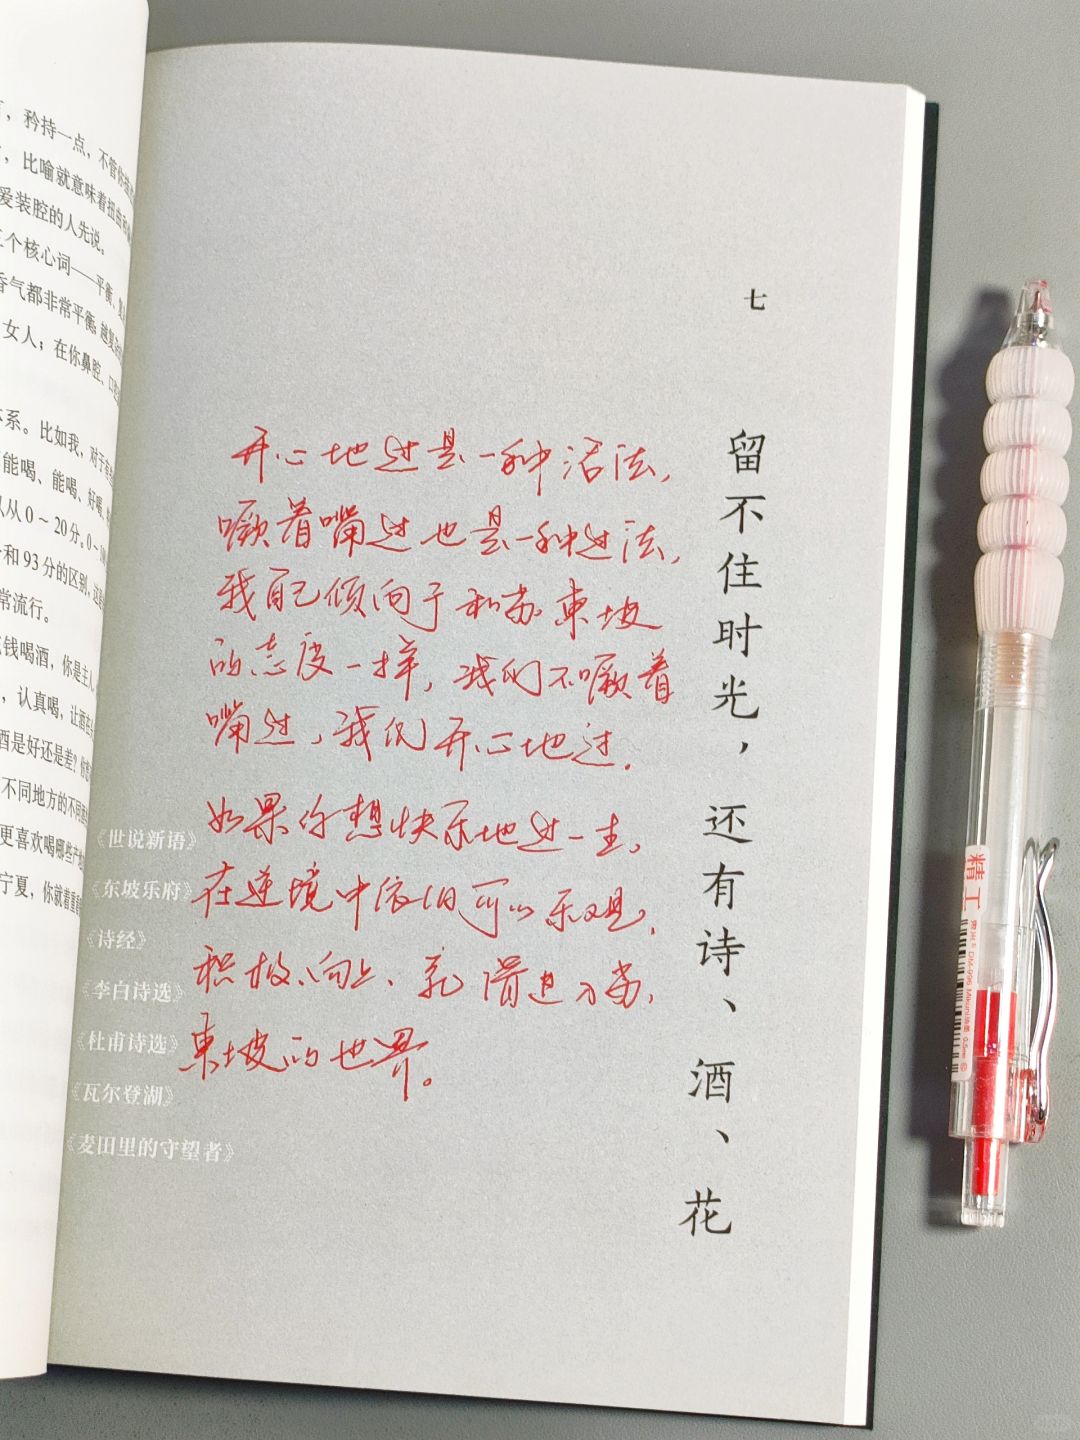 ，矜持一点，不管你
，比喻就意味着扭曲
爱装腔的人先说。
三个核心词——平衡、复
香气都非常平衡；越复杂
女人；在你鼻腔、口
体系。比如我，对于
能喝、能喝、好喝、
以从0～20分。0～
和93分的区别，
常流行。
钱喝酒，你是主人
，认真喝，让酒
酒是好还是差？你
不同地方的不同
更喜欢喝哪些产
宁夏，你就着重
七
留不住时光，还有诗、酒、花
开心地过是一种活法，
噘着嘴过也是一种过法，
我自己倾向于和苏東坡
的态度一样，我们不噘着
嘴过，我们开心地过.
如果你想快乐地过一生，
在逆境中依旧可以乐观，
积极、向上、就滑进了苏
東坡的世界。
《世说新语》
《东坡乐府》
《诗经》
《李白诗选》
《杜甫诗选》
《瓦尔登湖》
《麦田里的守望者》
精工
DM-996